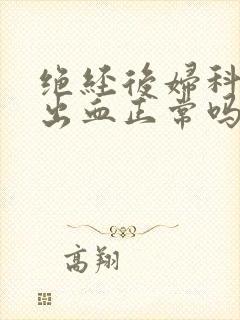 绝经後婦科
出血正常吗
高翔